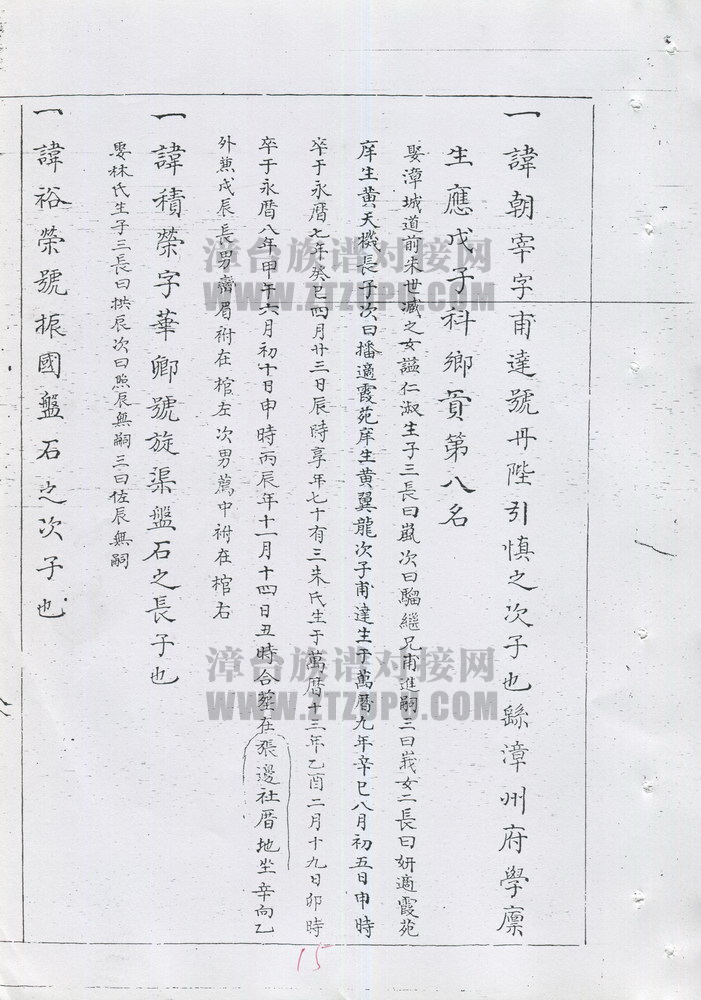 一諱朝宰字甫達號丹陛引慎之次子也繇漳州府學廩
生應戊子科鄉貢第八名
娶漳城道前朱世減之女諡仁淑生子三長曰嵐次曰騮繼兄甫進嗣三曰峩女二長曰妍適霞苑
庠生黃天機長子次曰播適霞苑庠生黃翼龍次子甫達生于萬曆九年辛巳八月初五日申時
卒于永曆七年癸巳四月廿三日辰時享年七十有三朱氏生于萬曆十三年乙酉二月十九日卯時
卒于永曆八年甲午六月初十日申時丙辰年十一月十四日丑時合葬在張邊社厝地坐辛向乙
外兼戊辰長男齋眉祔在棺左次男薦中祔在棺右
一諱積榮字華卿號旋渠盤石之長子也
娶林氏生子三長曰拱辰次曰熙辰無嗣三曰佐辰無嗣
一諱裕榮號振國盤石之次子也
15
漳台族谱对接网
WWW.ZTZUPU.COM
漳台族谱对接网
WWW.ZTZUPU.COM